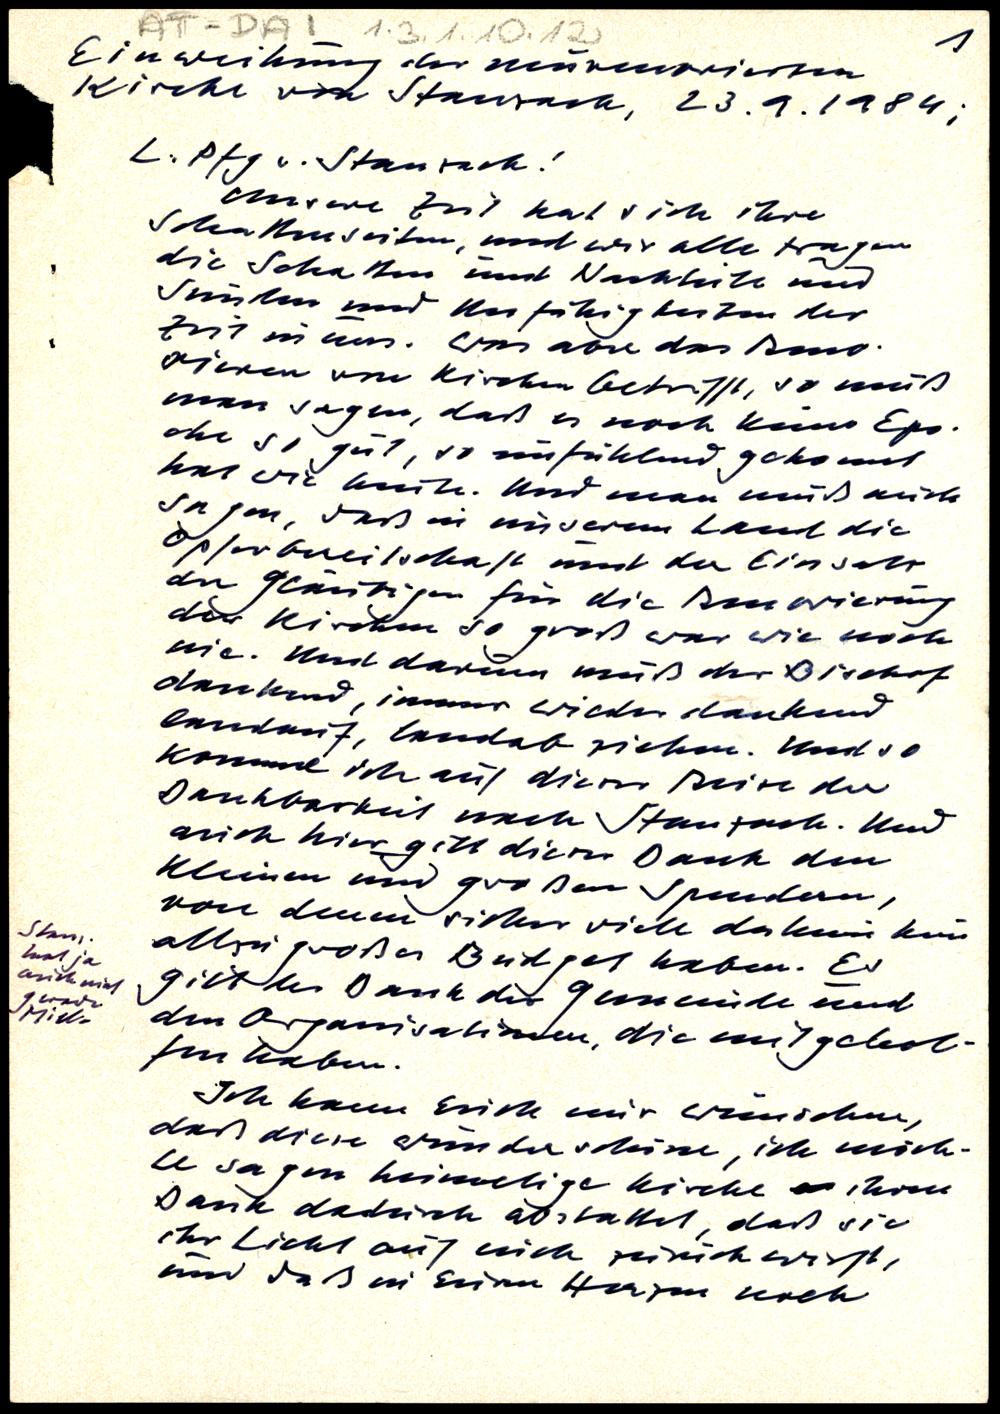 AT-DAI 1.3.1.10.12
1
Einweihung der neurenovierten
Kirche von Stanzach, 23.9.1984;
L. Pfg v. Stanzach!
Unsere Zeit hat sich ihre
Schattenseiten, und wir alle tragen
die Schatten und Nachteile und
Sünden und Unfähigkeiten der
Zeit in uns. Was aber das Reno-
vieren von Kirchen betrifft, so muß
man sagen, daß es noch keine Epo-
che so gut, so einfühlend gekonnt
hat wie heute. Und man muß auch
sagen, daß in unserem Land die
Opferbereitschaft und der Einsatz
der Gläubigen für die Renovierung
der Kirchen so groß war wie noch
nie. Und darum muß der Bischof
dankend, immer wieder dankend
landauf, landab ziehen. Und so
komme ich auf dieser Reise der
Dankbarkeit nach Stanzach. Und
auch hier gilt dieser Dank den
kleinen und großen Spendern,
von denen sicher viele daheim kein
allzu großes Budget haben. Es
gilt der Dank der Gemeinde und
den Organisationen, die mitgehol-
fen haben.
Stanz.
hat ja
auch nicht
gerade
Ich kann Euch nur wünschen,
daß diese wunderschöne, ich möch-
te sagen heimelige Kirche ihren
Dank dadurch abstattet, daß sie
ihr Licht auf euch zurückwirft,
und daß in Euren Herzen noch